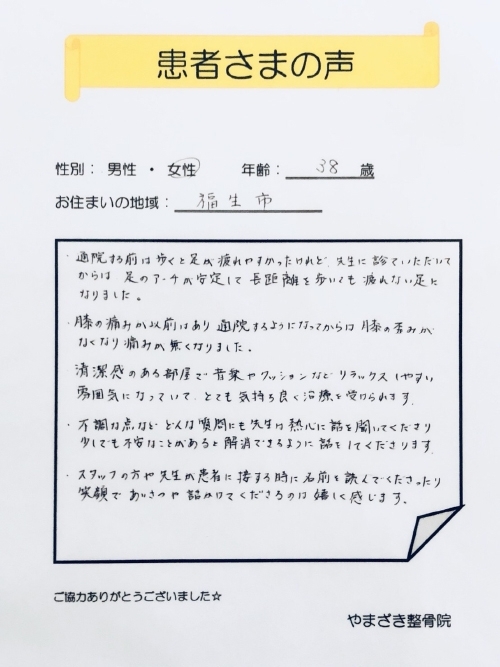 患者さまの声
性別： 男性 ・ 女性 年齢： 38 歳
お住まいの地域： 福生市
・通院する前は歩くと足が疲れやすかったけれど、先生に診ていただいて
からは 足のアーチが安定して 長距離を歩いても 疲れない足に
なりました。
・膝の痛みが以前はあり 通院するようになってからは 膝の歪みが
なくなり痛みが無くなりました。
清潔感のある部屋で音楽やクッションなど リラックスしやすい
雰囲気になっていて、とても気持ち良く治療を受けられます。
・不調な点など どんな質問にも先生は熱心に話を聞いてくださり
少しでも不安なことがあると解消できるように話をしてくださります。
・スタッフの方や先生が患者に接する時に名前を読んでくださったり
笑顔であいさつや話かけてくださるのは嬉しく感じます。
ご協力ありがとうございました☆
やまざき整骨院